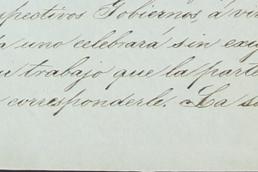 spectivos Gobiernos, á vir
da uno celebrará sin exig
su trabajo que la parte
corresponderle. La so